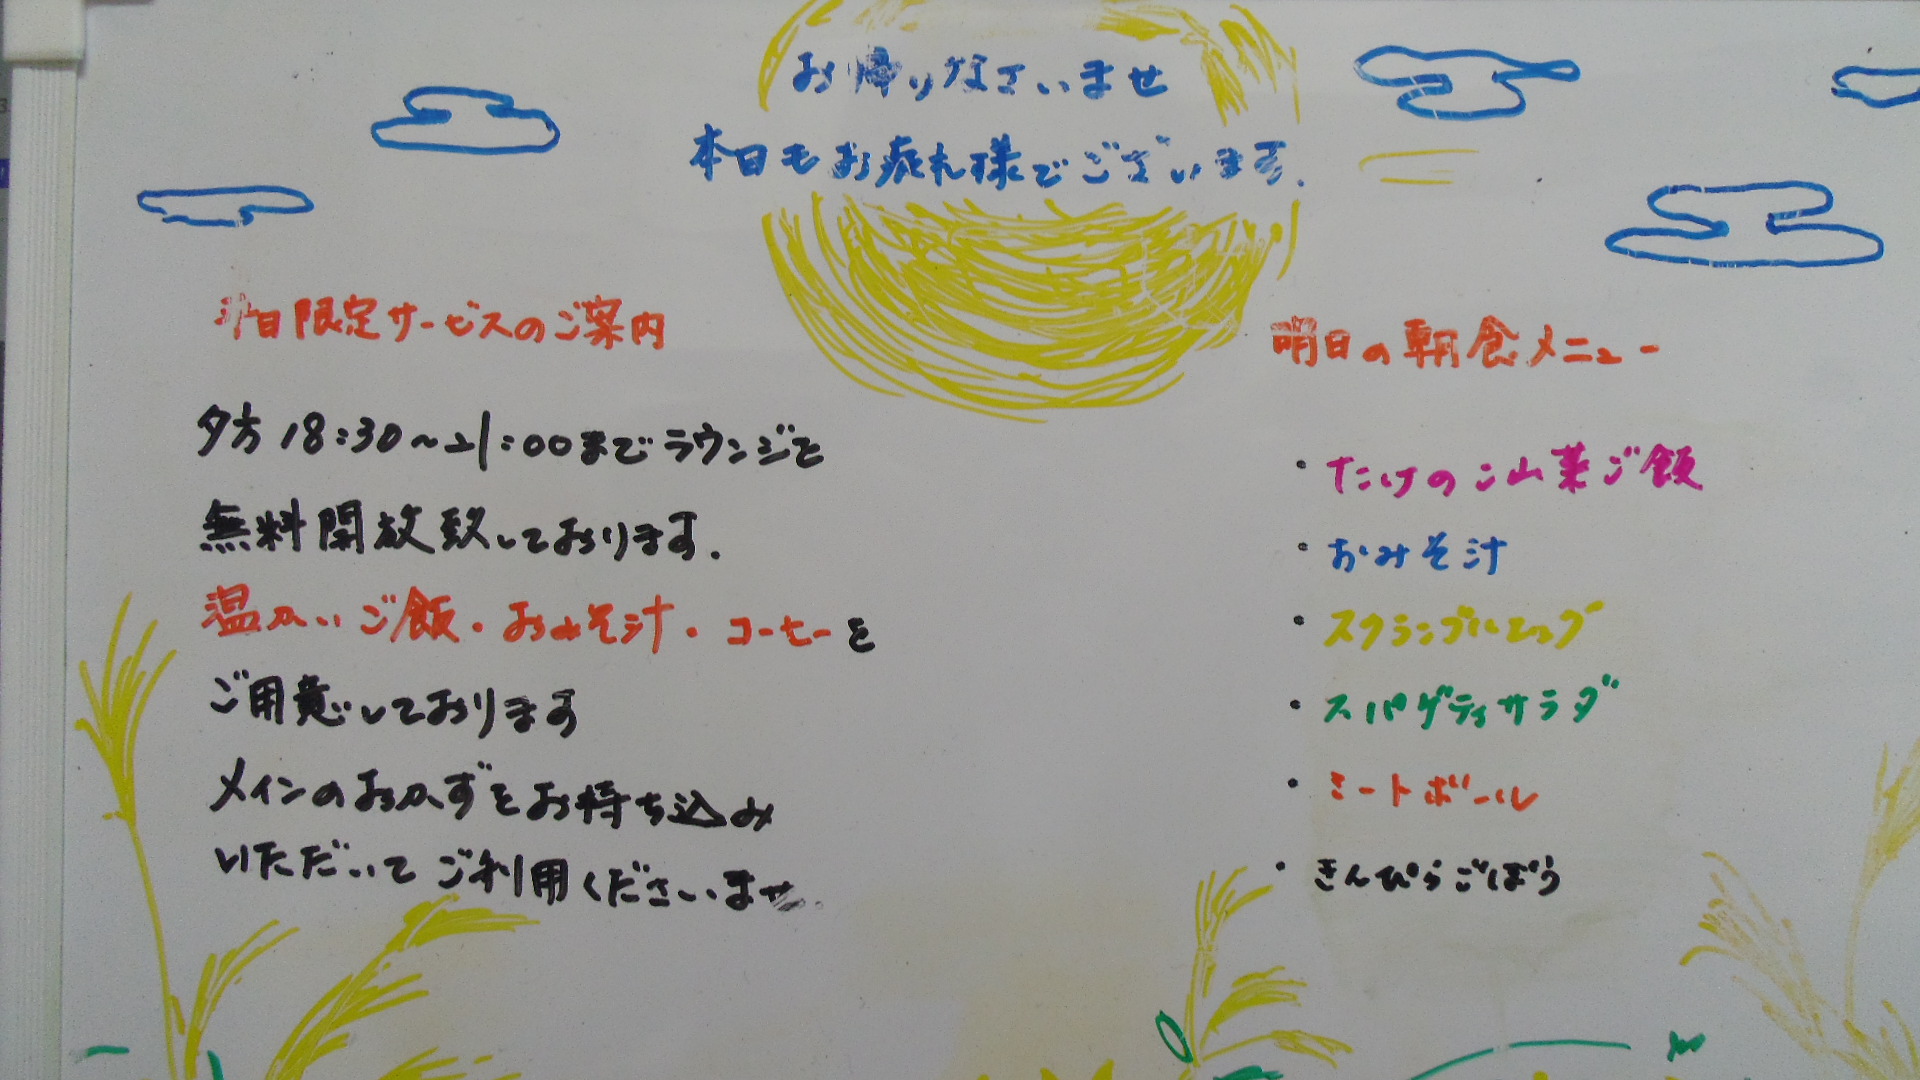 お帰りなさいませ
本日もお疲れ様でございます.
平日限定サービスのご案内
夕方18:30～21:00までラウンジを
無料開放致しております.
温かいご飯・おみそ汁・コーヒーを
ご用意しております
メインのおかずをお持ち込み
いただいてご利用くださいませ.
明日の朝食メニュー
・たけのこ山菜ご飯
・おみそ汁
・スクランブルエッグ
・スパゲティサラダ
・ミートボール
・きんぴらごぼう